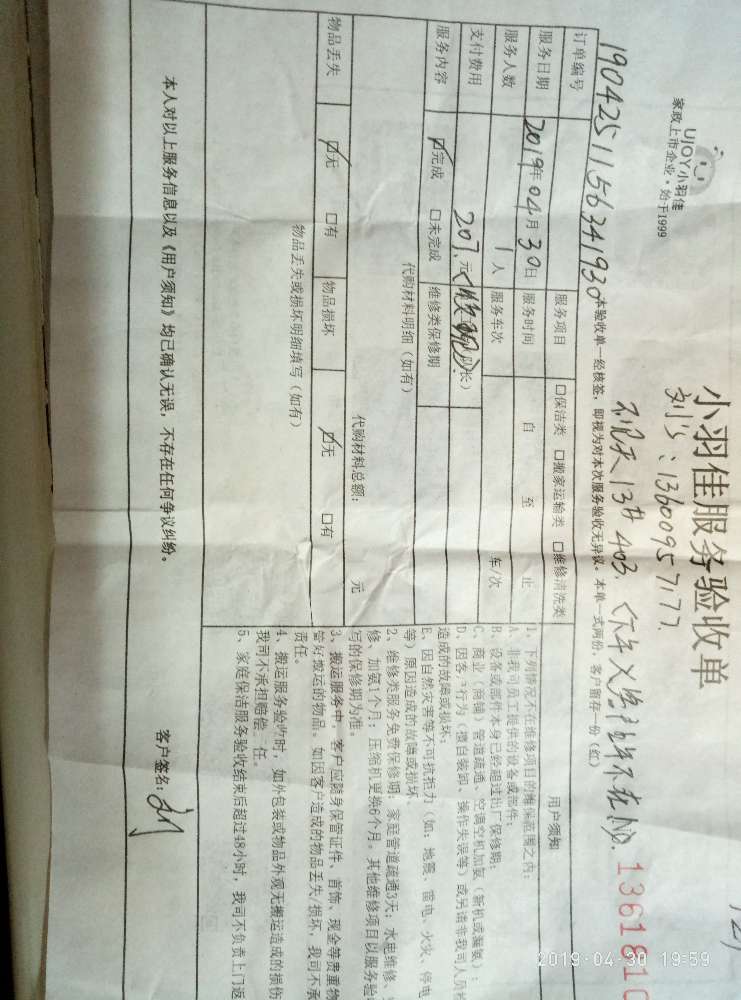 UJOY小羽佳
家政上市企业·始于1999
小羽佳服务验收单
13600957177.
13# 403.
NO.
1361810
本验收单一经核签，即视为对本次服务验收无异议。本单一式两份，客户留存一份（红）
订单编号
1904251156341930
服务项目 □保洁类 □搬家运输类 □维修清洗类
服务日期 2019年04月30日 服务时间 自 至 止
服务人数 1人 服务车次 车/次
支付费用 207.元
服务内容 ☑完成 □未完成 维修类保修期
代购材料明细（如有）
代购材料总额： 元
物品丢失 ☑无 □有 物品损坏 ☑无 □有
物品丢失或损坏明细填写（如有）
用户须知
1、下列情况不在维修项目的维保范围之内：
A、非我司员工提供的设备或部件；
B、设备或部件本身已经超过出厂保修期；
C、商业（商铺）管道疏通、空调空机加氨（新机或漏氨）；
D、因客户行为（擅自装卸、操作失误等）或另请非我司人员
造成的故障或损坏；
E、因自然灾害等不可抗拒力（如：地震、雷电、火灾、停电
等）原因造成的故障或损坏
2、维修类服务免费保修期：家庭管道疏通3天；水电维修、
修、加氨1个月；压缩机更换6个月。其他维修项目以服务验
写的保修期为准。
3、搬运服务中，客户应随身保管证件、首饰、现金等贵重物
管好搬运的物品。如因客户造成的物品丢失/损坏，我司不承
责任。
4、搬运服务验收时，如外包装或物品外观无搬运造成的损伤
我司不承担赔偿 任。
5、家庭保洁服务验收结束后超过48小时，我司不负责上门返
本人对以上服务信息以及《用户须知》均已确认无误，不存在任何争议纠纷。
客户签名：
2019-04-30 19:59